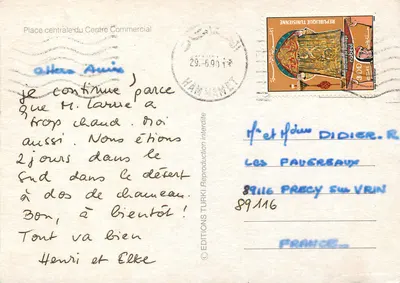 Place centrale du Centre Commercial
Chers Amis
je continue, parce
que M. Larue a
trop chaud. Moi
aussi. Nous étions
2 jours dans le
sud dans le désert
à dos de chameau.
Bon, à bientôt !
Tout va bien
Henri et Elke
© EDITIONS TURKI Reproduction interdite
HAMMAMET
REPUBLIQUE TUNISIENNE
Mr et Mme DIDIER. R
LES FAVEREAUX
89116 PRECY SUR VRIN
89116
FRANCE